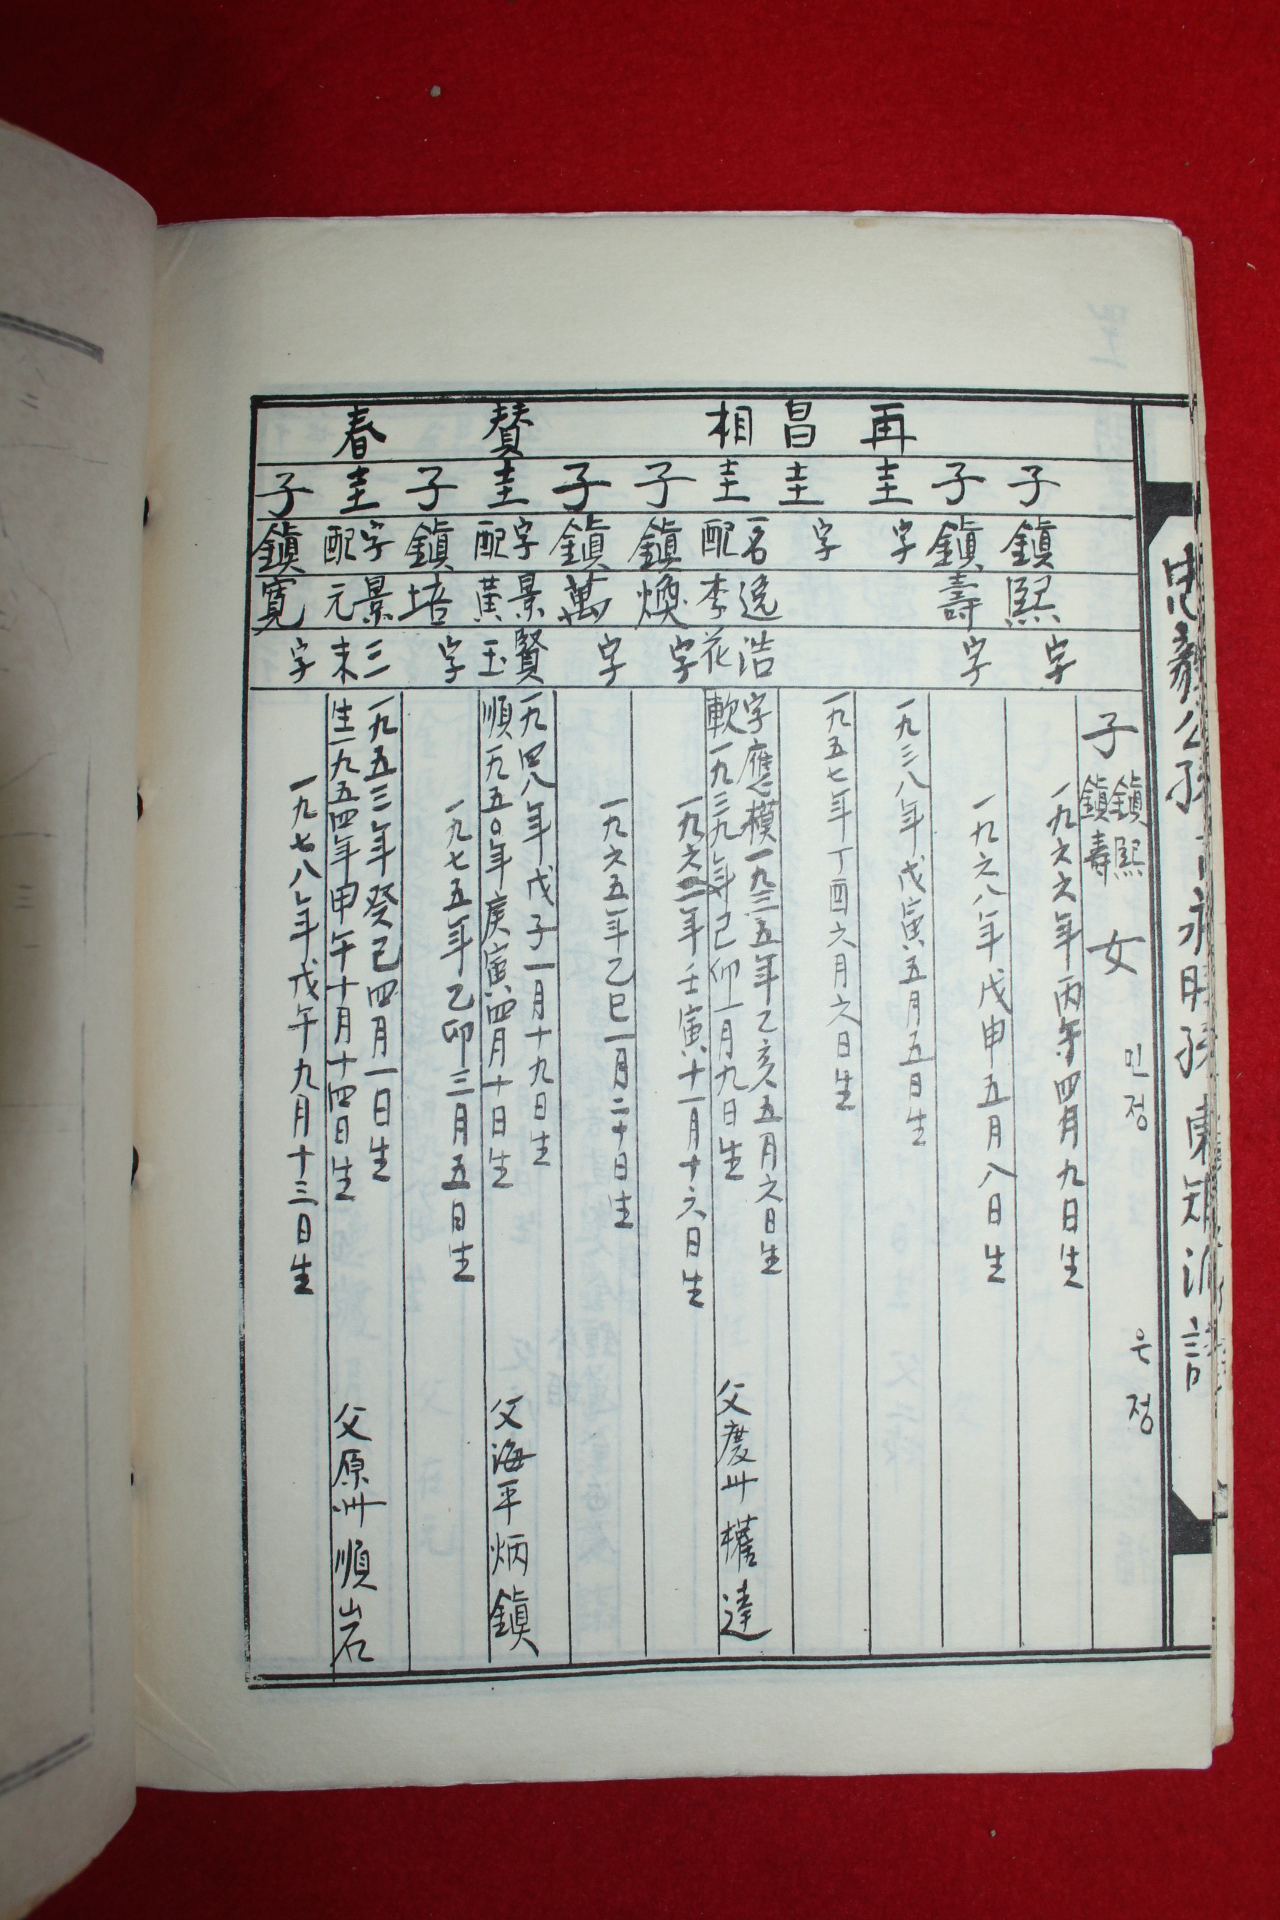 子 鎭熙 鎭壽 女 민정 은정
子 鎭熙 字 一九六六年丙午四月九日生
子 鎭壽 字 一九六八年戊申五月八日生
再圭 字 一九三八年戊寅五月五日生
昌圭 字 一九五七年丁酉六月六日生
相圭 名逸浩 字應模一九三五年乙亥五月六日生
配李花軟一九三九年己卯一月九日生 父慶州 達
子 鎭煥 字 一九六二年壬寅十一月十六日生
子 鎭萬 字 一九六五年乙巳一月二十日生
贊圭 字景賢 一九四八年戊子一月十九日生
配黃玉順一九五〇年庚寅四月十日生 父海平炳鎭
子 鎭培 字 一九七五年乙卯三月五日生
春圭 字景三 一九五三年癸己四月一日生
配元末生一九五四年甲午十月十四日生 父原州順岩
子 鎭寬 字 一九七八年戊午九月十三日生